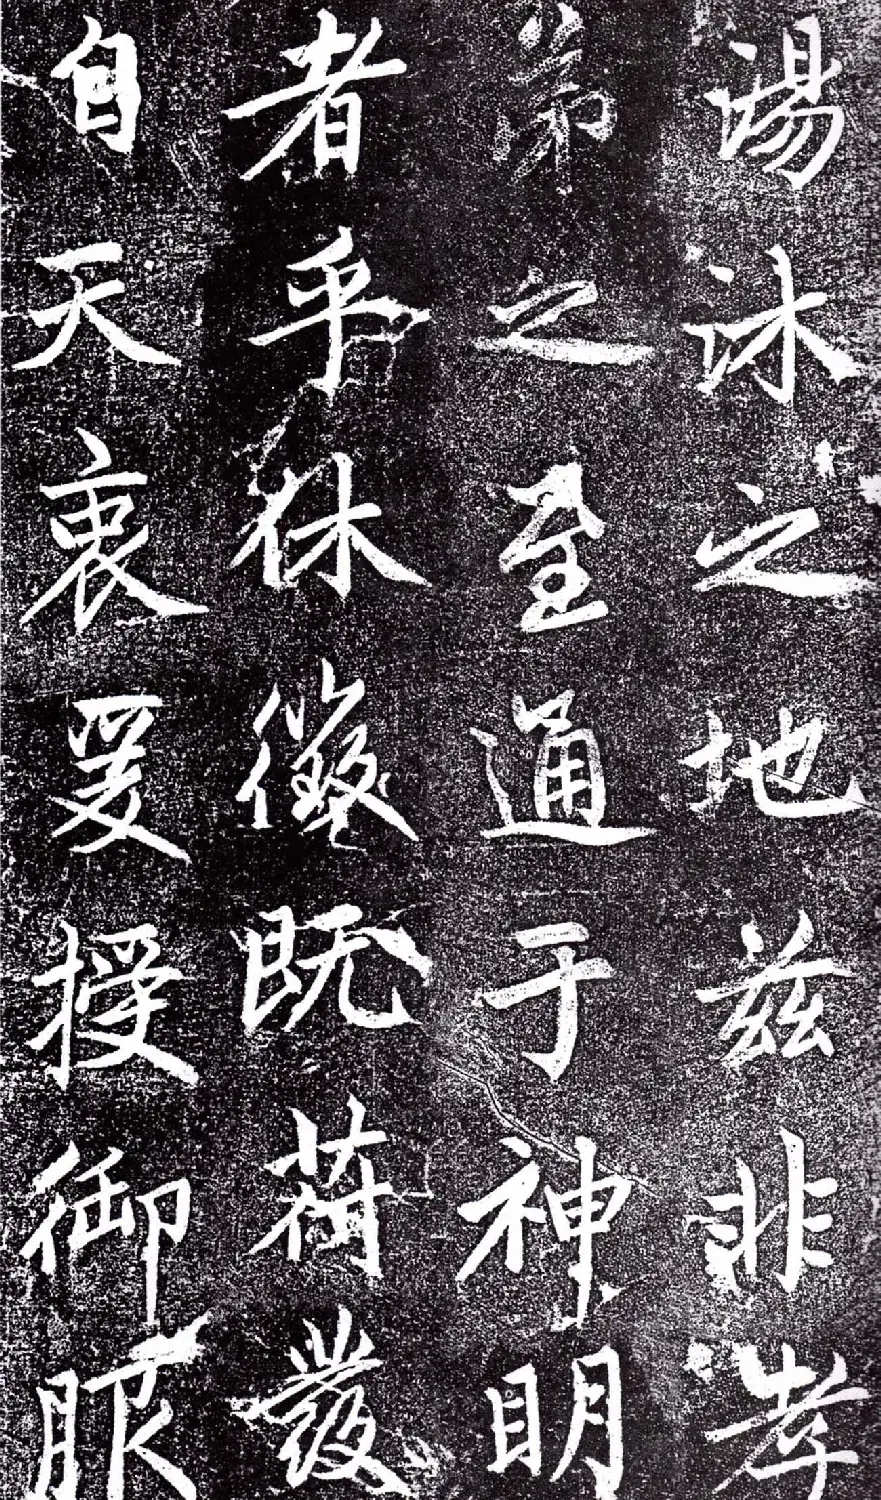 湯沐之地兹非孝
弟之至通于神明
者乎休徵既荷發
自天衷爰授御服